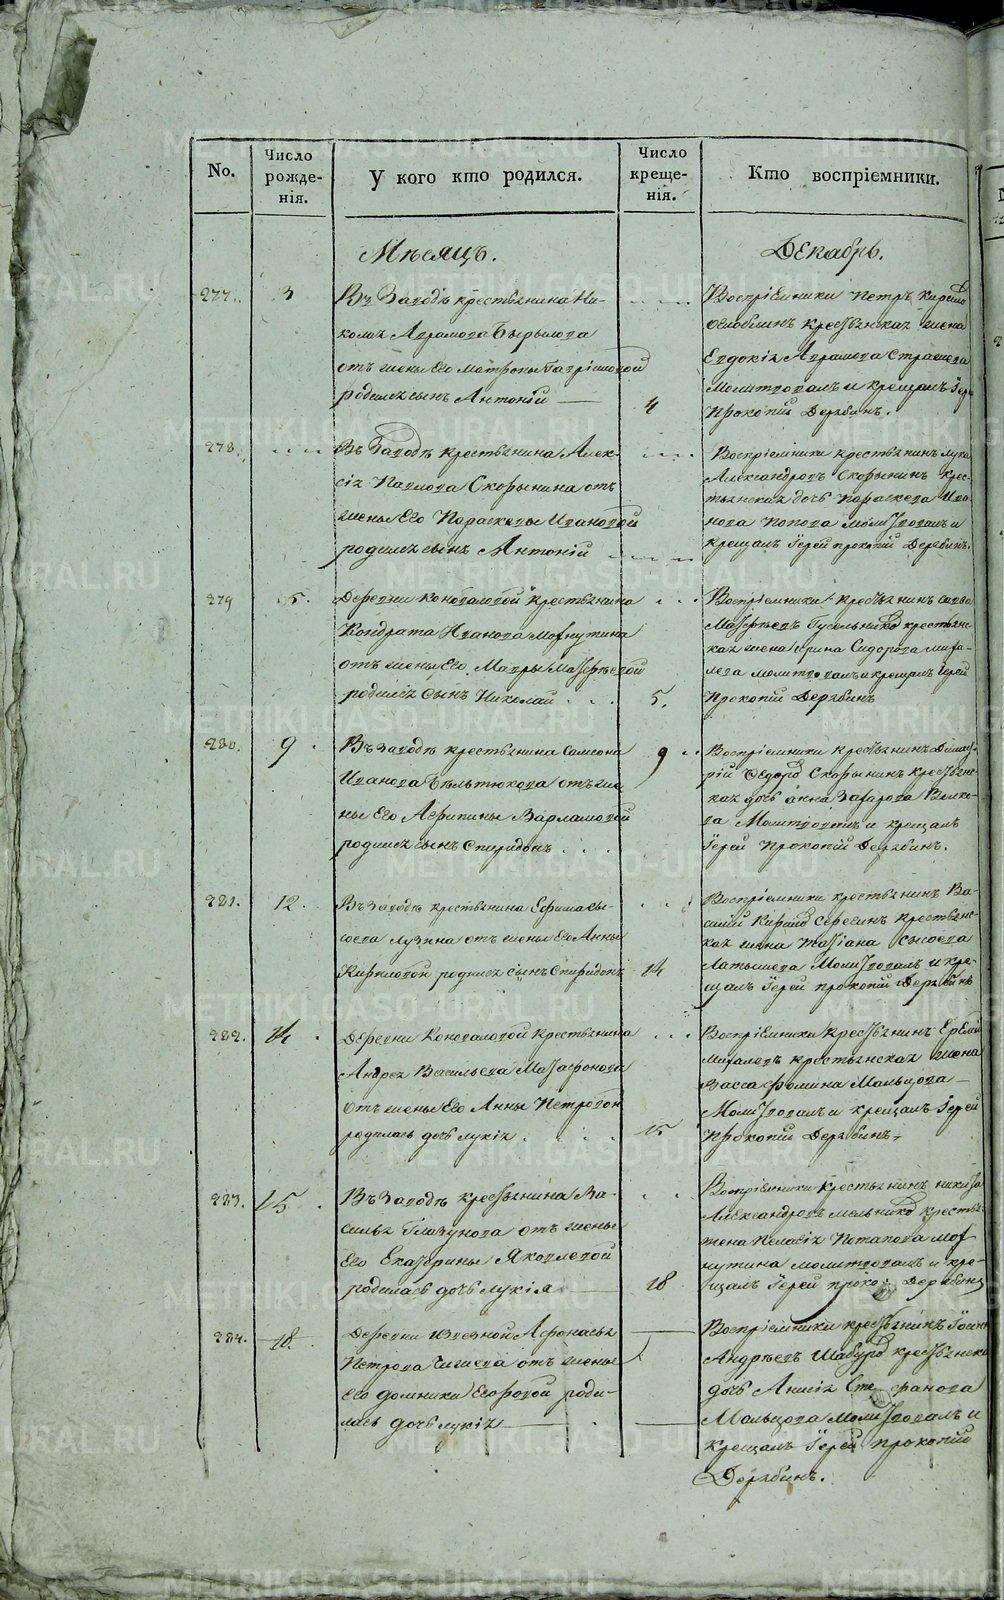 No.
Число рожде-нія.
У кого кто родился.
Число креще-нія.
Кто воспріемники.
Мѣсяцъ.
Декабрь.
277.
3
Въ Заводѣ крестьянина Ни-
колая Аврамова Бырылова
отъ жены Его Матроны Гавриловой
родился сынъ Антоній
4
Воспріемники Петръ
крестьянская жена
Евдокія Аврамова
Молитвовалъ и крещалъ Іерей
Прокопій Дерябинъ.
278.
Въ Заводѣ крестьянина Алек-
сія Павлова Скорынина отъ
жены Его Параскевы Ивановой
родился сынъ Антоній
Воспріемники крестьянинъ Лука
Александровъ Скорынинъ крес-
тьянская дочь Параскева Ива-
нова Попова молитвовалъ и
крещалъ Іерей Прокопій Дерябинъ.
279
5.
Деревни Коноваловой крестьянина
Кондрата Иванова Мохнутина
отъ жены Его Мавры Матвѣевой
родился сынъ Николай
5.
Воспріемники крестьянинъ Савва
Матвѣевъ Гусельников крестьянс-
кая жена Ирина Сидорова Миха-
лева молитвовалъ и крещалъ Іерей
Прокопій Дерябинъ
280.
9
Въ Заводѣ крестьянина Самсона
Иванова Бѣльтюкова отъ же-
ны Его Агрипины Варламовой
родился сынъ Спиридонъ
9
Воспріемники крестьянинъ Димит-
рій Федоров Скорынинъ крестьянс-
кая дочь Анна Захарова Волко-
ва Молитвовалъ и крещалъ
Іерей Прокопій Дерябинъ.
281.
12.
Въ Заводѣ крестьянина Ефима Сы-
соева Лузина отъ жены Его Анны
Кириловой родился сынъ Спиридонъ
14
Воспріемники крестьянинъ Ва-
силій Кирилов крестьянс-
кая жена Татіана Сысоева
Латышева Молитвовалъ и кре-
щалъ Іерей Прокопій Дерябинъ
282.
14.
Деревни Коноваловой крестьянина
Андрея Васильева Мазафонова
отъ жены Его Анны Петровой
родилась дочь Лукія
15
Воспріемники крестьянинъ Еремій
Михалевъ крестьянская жена
Васса Фомина Мальцова
Молитвовалъ и крещалъ Іерей
Прокопій Дерябинъ
283.
15
Въ Заводѣ крестьянина Ва-
силья Глазунова отъ жены
Его Екатерины Яковлевой
родилась дочь Лукія
18
Воспріемники крестьянинъ Никита
Александровъ Мельников крестья-
жена Пелагія Потапова Мох-
нутина молитвовалъ и кре-
щалъ Іерей Проко: Дерябинъ
284.
18.
Деревни Афонасья
Петрова Чигаева отъ жены
его Домники Егоровой роди-
лась дочь Лукія
Воспріемники крестьянинъ Іоаннъ
Андрѣевъ Шабуров крестьянска
дочь Анисія Стефанова
Мальцова Молитвовалъ и
крещалъ Іерей Прокопій
Дерябинъ.
METRIKI.GASO-URAL.RU